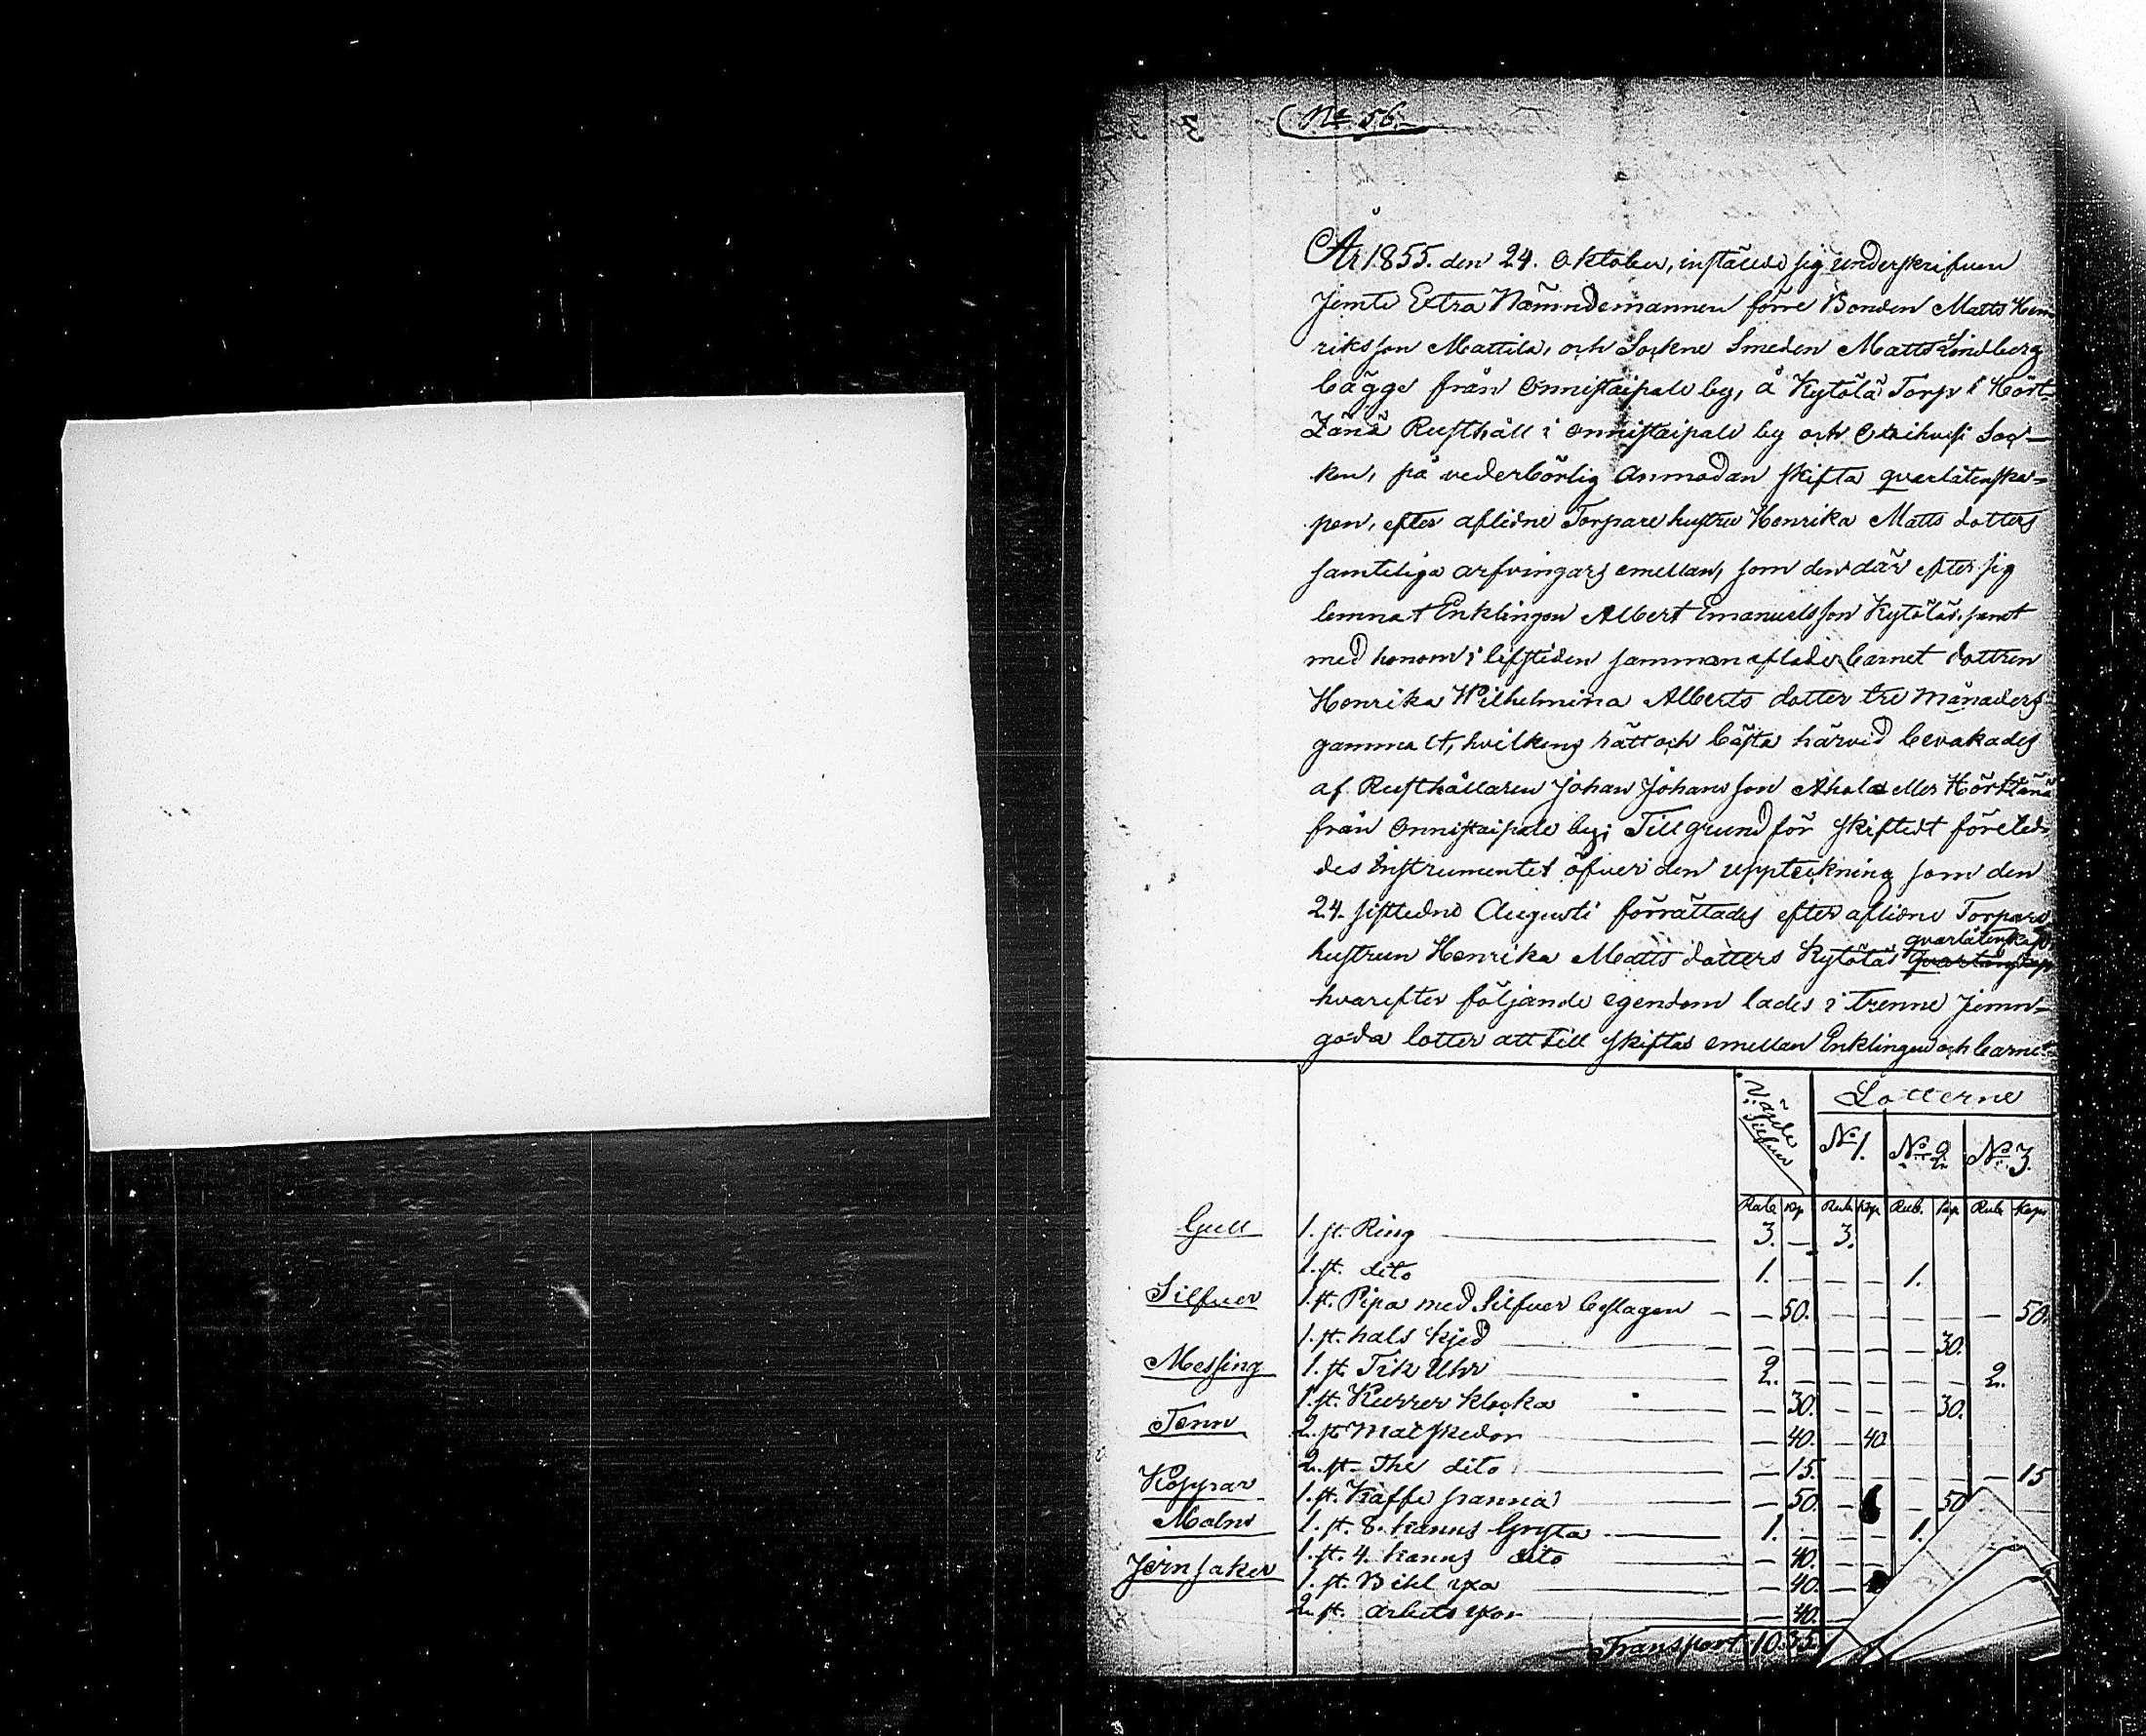 No 56.
År 1855. den 24. Oktober, instälde sig underskrifven
Jemte Extra Nämndemannen förre Bonden Matts Hen-
riksson Mattila, och Sockne Smeden Matts Lindberg
bägge från Onnistaipale by, å Kytölä Torp i Hört-
länä Rusthåll i Onnistaipale by och Soc-
ken, på vederbörlig Anmodan skifta qvarlåtenska-
pen, efter aflidne Torpare hustru Henrika Matts dotters
samteliga arfvingars emellan, som den där efter sig
lemnat Enklingen Albert Emanuelsson Kytölä, samt
med honom i lifstiden samman aflade barnet dottren
Henrika Wilhelmina Alberts dotter tre månaders
gammalt, hvilkens rätt och bästa härvid bevakades
af Rusthållaren Johan Johansson Ahola eller Hörtlänä
från Onnistaipale by; Till grund för skiftet föreled-
des Instrumentet öfver den uppteckning som den
24. sistledne Augusti förrättades efter aflidne Torpare
hustrun Henrika Matts dotters Kytöläs qvarlåtenskap
hvarefter följande egendom lades i trenne jemn-
goda lotter att till skiftas emellan Enklingen och barnet
Värde Silfver Lotterne
No 1. No 2 No 3.
Rub Kop Rub Kop Rub. Kop Rub Kop
Gull 1. st. Ring 3. — 3.
1. st. dito 1. — — — 1.
Silfver 1. st. Pipa med Silfver beslagen — 50. — — — — — 50.
1. st. hals kjed — — — — — 30.
Messing 1. st. Fik Uhr 2. — — — — — 2.
1. st. klocka — 30. — — — 30.
Tenn 2. st. Mat skedar — 40. — 40
2. st. The dito — 15. — — — — — 15
Koppar 1. st. Kaffe panna — 50. — — 50
Malm 1. st. 8. kanns Gryta 1. — — — 1.
Jernsaker 1. st. 4. kanns dito — 40. — —
1. st. Bihl yxa — 40. —
2. st. arbets yxor — 40. —
Transport 10.35